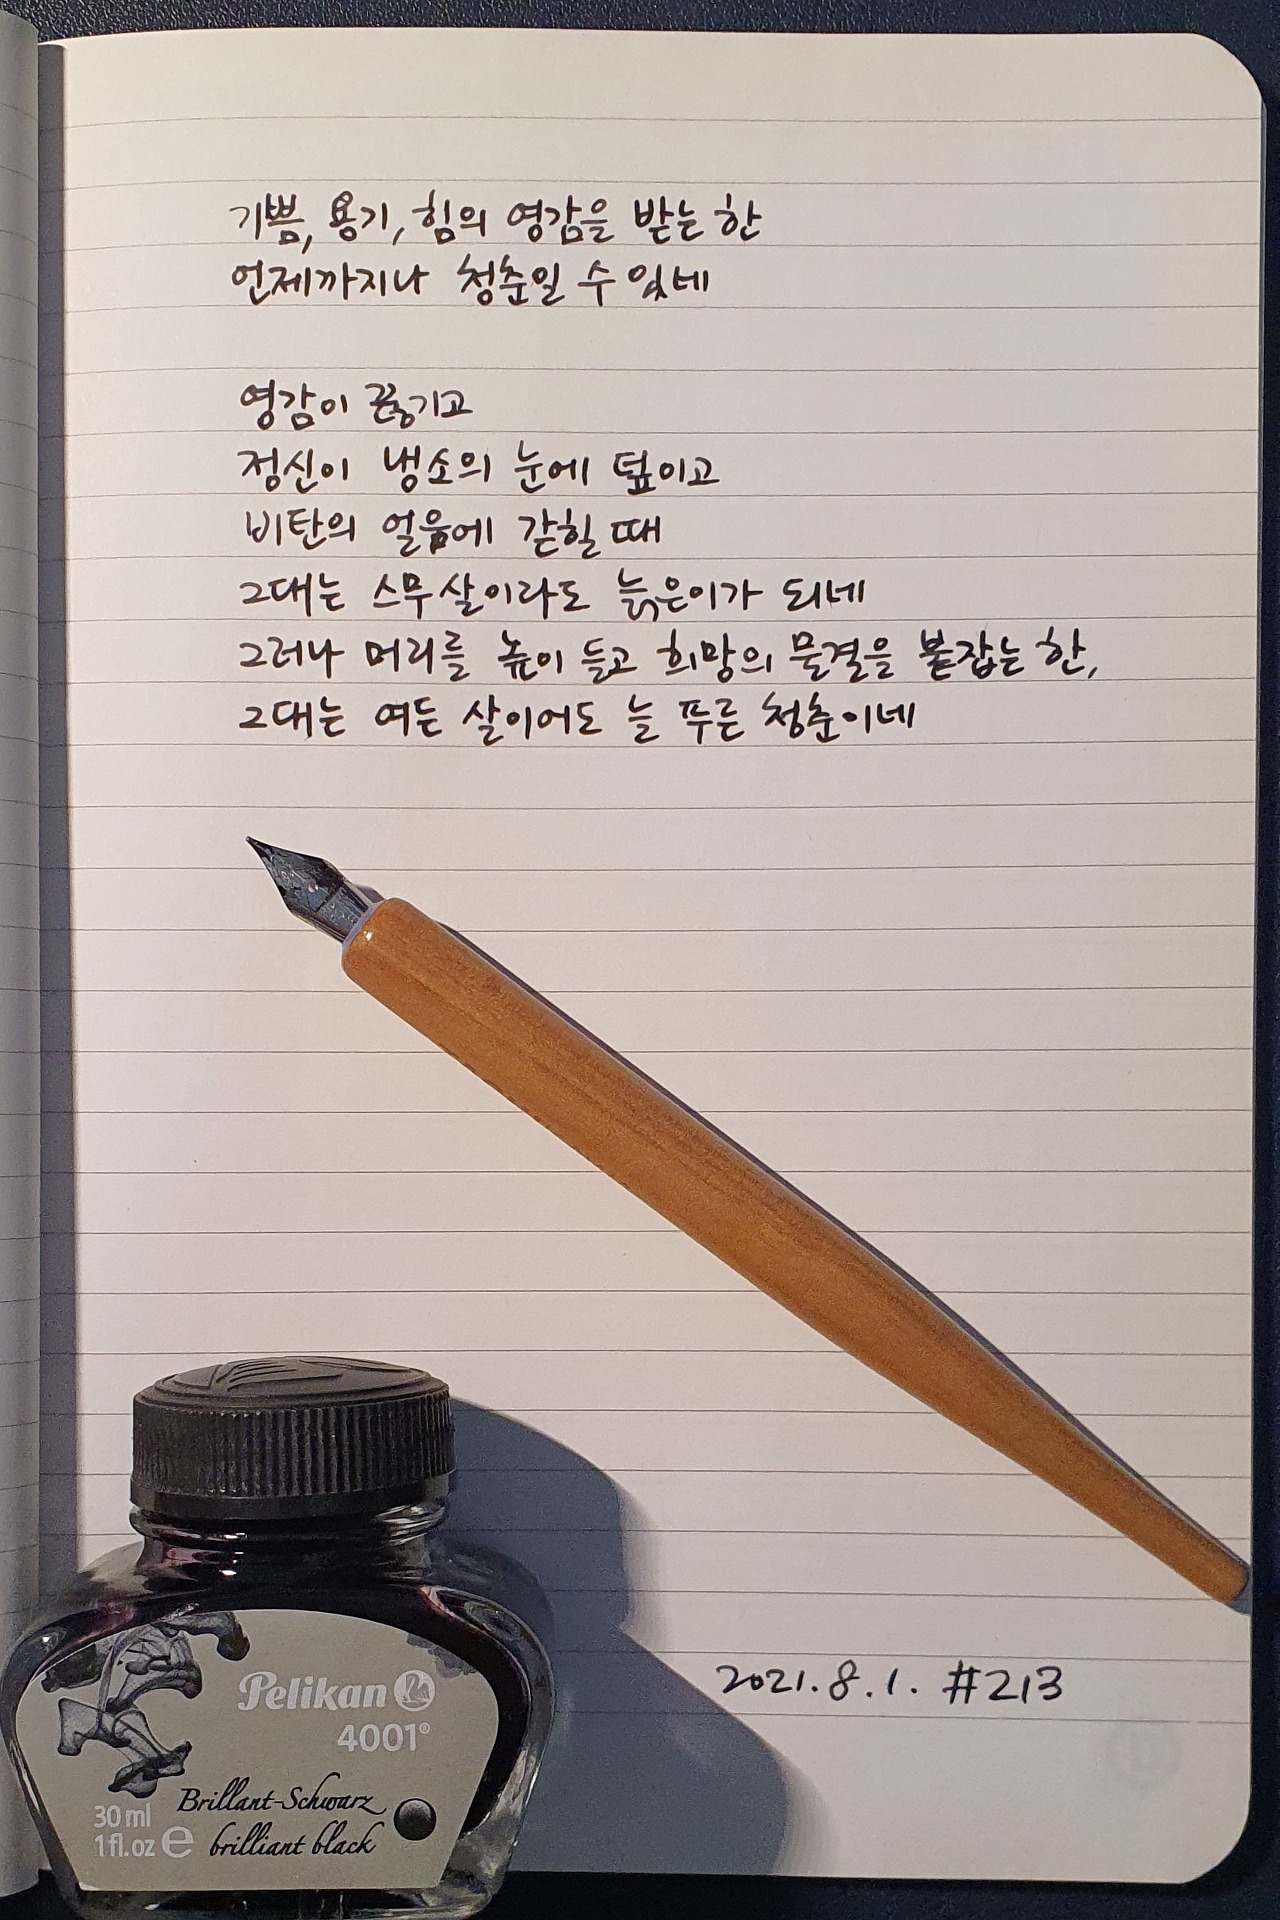 기쁨, 용기, 힘의 영감을 받는 한
언제까지나 청춘일 수 있네
영감이 끊기고
정신이 냉소의 눈에 덮이고
비탄의 얼음에 갇힐 때
그대는 스무살이라도 늙은이가 되네
그러나 머리를 높이 들고 희망의 물결을 붙잡는 한,
그대는 여든 살이어도 늘 푸른 청춘이네
2021.8.1. #213
Pelikan
4001®
Brillant-Schwarz
brilliant black
30 ml
1 fl.oz e